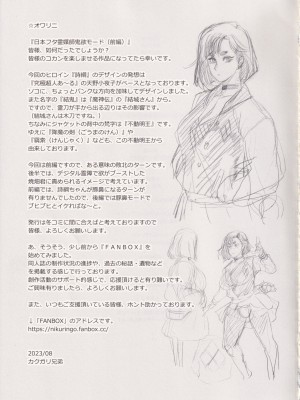 ※オワリニ
『日本フタ霊媒師鬼嶽モード(前編)』
皆様、如何だったでしょうか?
皆様のコカンを楽しませる作品になってたら幸いです。
今回のヒロイン『詩綱』のデザインの発想は
『究極超人あ〜る』の天野小夜子がベースとなっております。
ソコに、ちょっとパンクな方向を加味してデザインしました。
また名字の『結鬼』は『魔神伝』の『結城さん』から。
なので、霊力が手から出る辺りはその影響です。
(結城さんは木刀ですね。)
ちなみにジャケットの背中の梵字は『不動明王』です。
ゆえに『降魔の剣(ごうまのけん)』と
『羂索(けんじゃく)』なども、この不動明王から
由来しております。
今回は前編ですので、ある意味の敗北のターンです。
後半では、デジタル霊障で欲がブーストした
焼烟君に責められるイメージで考えています。
前編では、詩綱ちゃんが悪霊になる描写が
有りませんでしたので、後編では悪霊モードで
ブヒブヒとイケればな〜と。
発行は冬コミに間に合えばと考えておりますので
皆様、よろしくお願いします。
あ、そうそう、少し前から『FANBOX』を
始めてみました。
同人誌の制作状況の進捗や、過去の絵話・遺物など
を掲載する感じで行っております。
創作活動のサポート的感じで、応援頂けると有り難いです。
ご興味有りましたら、よろしくお願いします。
また、いつもご支援頂いている皆様、ホント助かっております。
↓『FANBOX』のアドレスです。
https://nikuringo.fanbox.cc/
2023/08
カクガリ兄弟